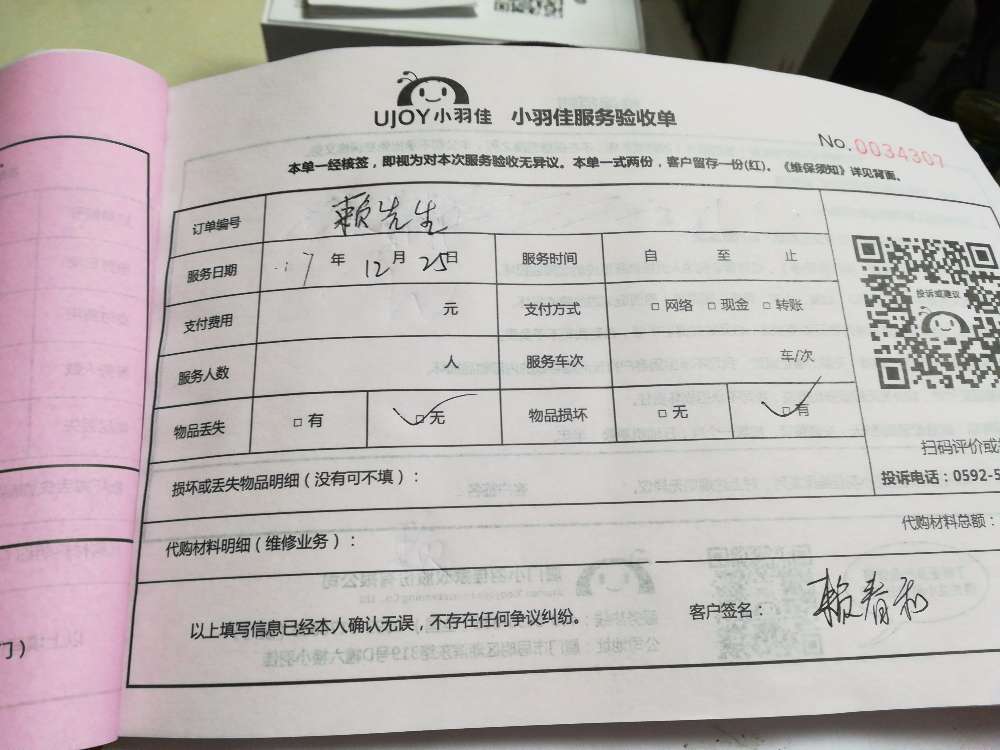 UJOY小羽佳 小羽佳服务验收单
No.0034307
本单一经核签，即视为对本次服务验收无异议。本单一式两份，客户留存一份(红)。《维保须知》详见背面。
订单编号 赖先生
服务日期 17年 12月 25日 服务时间 自 至 止
支付费用 元 支付方式 □ 网络 □ 现金 □ 转账
服务人数 人 服务车次 车/次
物品丢失 □ 有 □ 无 物品损坏 □ 无 □ 有
投诉或建议
扫码评价或
投诉电话：0592-5
损坏或丢失物品明细（没有可不填）：
代购材料明细（维修业务）： 代购材料总额：
以上填写信息已经本人确认无误，不存在任何争议纠纷。 客户签名： 赖春和